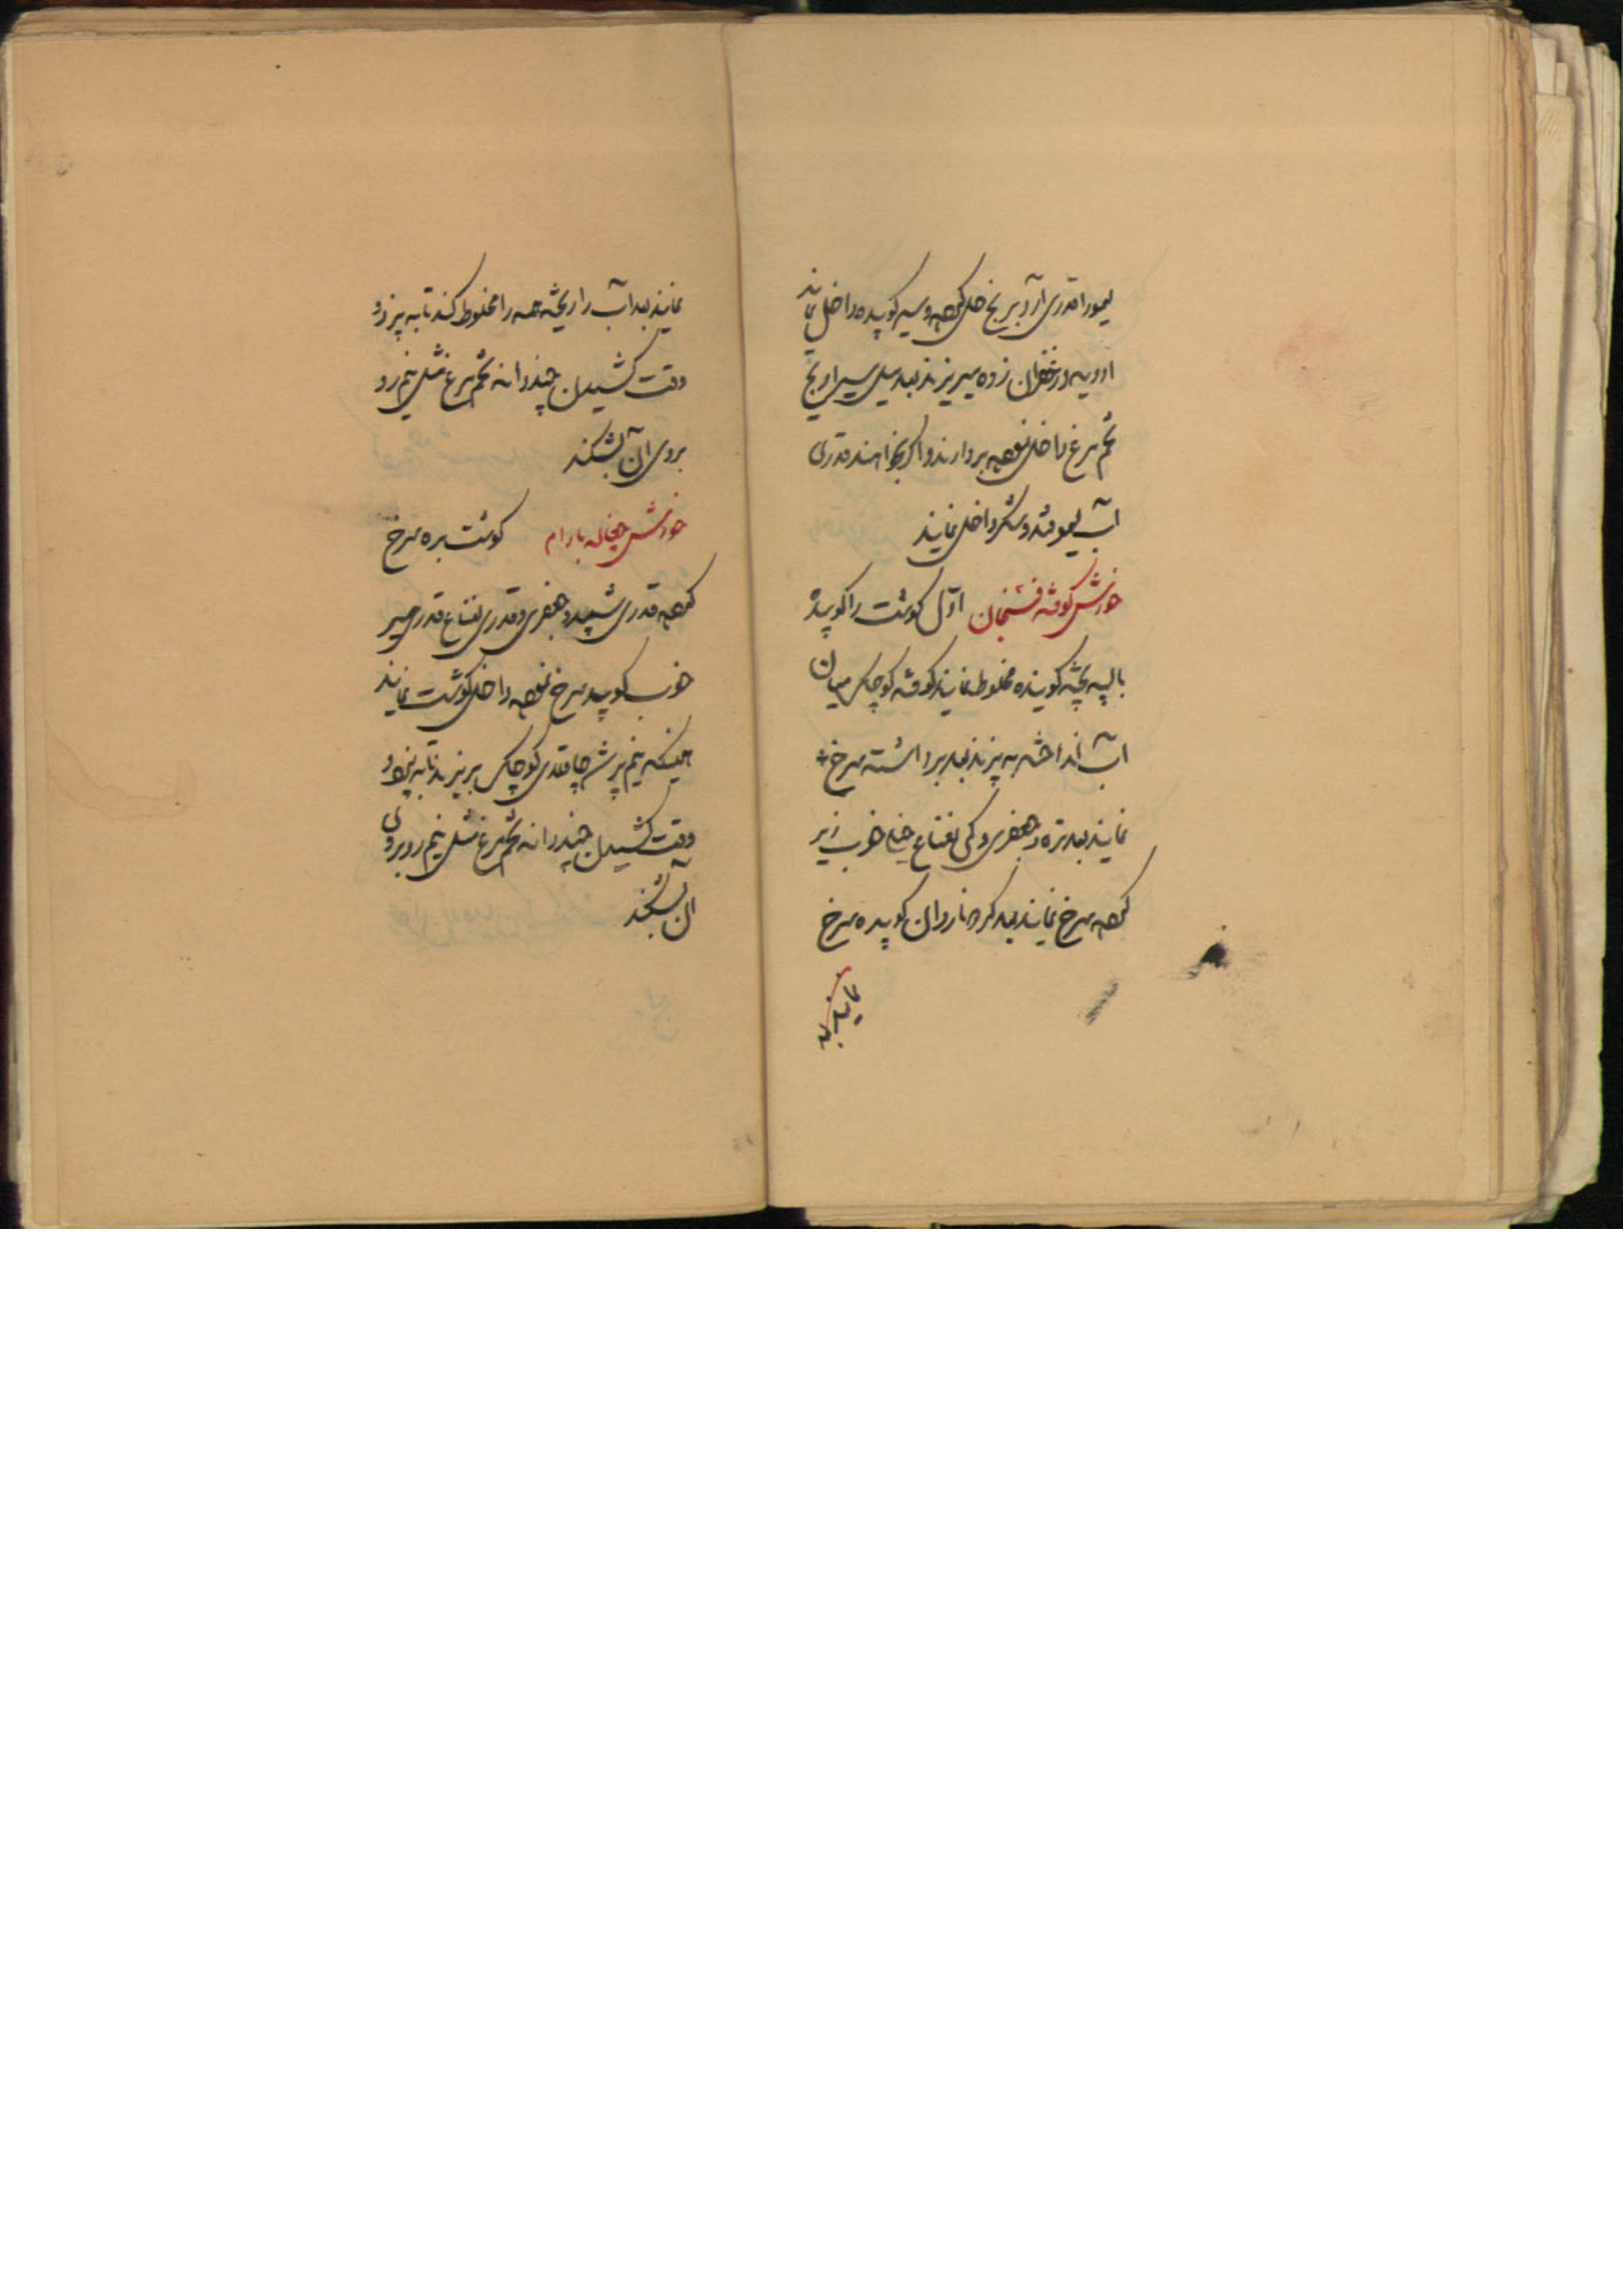 لیمو را قدری آرد برنج حل کرده و سیر کوبیده داخل نمایند
ادویه و زعفران زده میریزند بعد مثل سیرابیج
تخم مرغ داخل نموده بردارند و اگر بخواهند قدری
آب لیمو قند و شکر داخل نمایند
خورش کوفته فسنجان اول گوشت را کوبیده
با پیه پخته کوبیده مخلوط نمایند کوفته کوچک میان
آب انداخته به پزند بعد برداشته سرخ
نمایند بعد تره و جعفری و کمی نعناع خوب ریز
کرده سرخ نمایند بعد گردو ناردان کوبیده سرخ
نمایند
نمایند بعد آب را ریخته همه را مخلوط کنند تا به پزد و
وقت کشیدن چند دانه تخم مرغ مثل نیم رو
بروی آن بشکنند
خورش چغاله بادام گوشت بره سرخ
کرده قدری شبید و جعفری و قدری نعناع قدری سیر
خوب کوبیده سرخ نموده داخل گوشت نمایند
همینکه نیم پز شد چاقله کوچک بریزند تا به پزد و
وقت کشیدن چند دانه تخم مرغ مثل نیم رو بروی
آن بشکنند